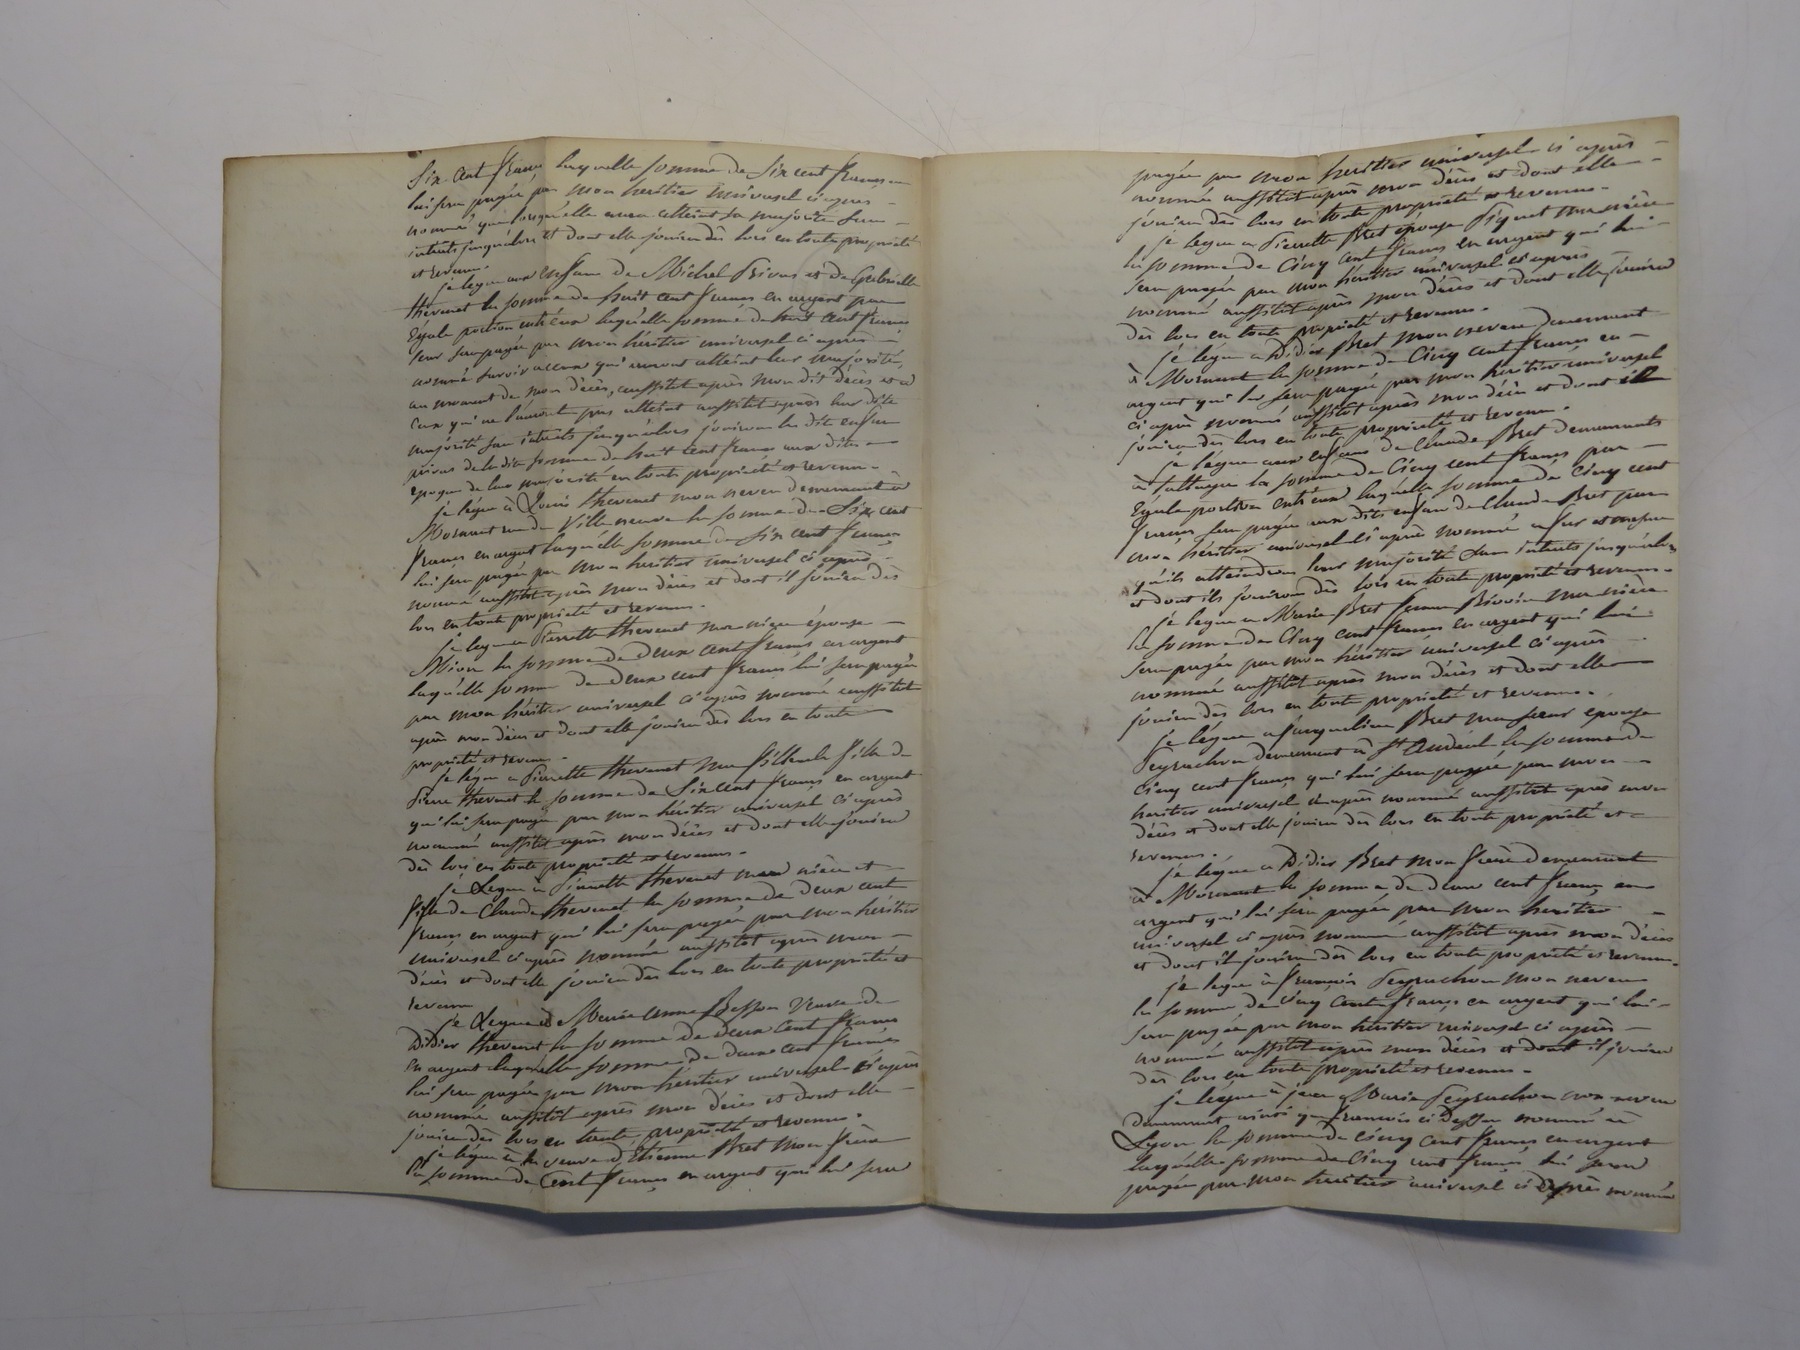 Six cent francs laquelle somme de six cent francs
lui sera payée par mon héritier universel ci après
nommé qui lorsqu'elle aura atteint sa majorité sans
intérêts jusqu'alors et dont elle jouira dès lors en toute propriété
et revenu.
je legue aux enfans de Michel Privas et de Gabrielle
thevenet la somme de huit cent francs en argent par
Egale portion entr'eux laquelle somme de huit cent francs
leur sera payée par mon héritier universel ci après
nommé savoir a ceux qui auront atteint leur majorité
au moment de mon décès, aussitot après mon dit décès et a
ceux qui ne l'auront pas atteint aussitot après leur dite
majorité sans intérêts jusqu'alors jouiron les dits enfans
privas de la dite somme de huit cent francs aux dites
epoque de leur majorité en toute propriété et revenu.
je legue à Louis thevenet mon neveu demeurant a
Mornant rue de Villeneuve la somme de Six cent
francs en argent laquelle somme de six cent francs
lui sera payée par mon héritier universel ci après
nommé aussitot après mon décès et dont il jouira dès
lors en toute propriété et revenu.
je legue a Pierrette thevenet ma nièce épouse
la somme de deux cent francs en argent
laquelle somme de deux cent francs lui sera payée
par mon héritier universel ci après nommé aussitot
après mon décès et dont elle jouira dès lors en toute
propriété et revenu.
je legue a Pierrette thevenet ma filleule fille de
Pierre thevenet la somme de Six cent francs en argent
qui lui sera payée par mon héritier universel ci après
nommé aussitot après mon décès et dont elle jouira
dès lors en toute propriété et revenu.
je Legue à Pierrette thevenet ma nièce et
fille de Claude thevenet la somme de deux cent
francs en argent qui lui sera payée par mon héritier
universel ci après nommé aussitot après mon
décès et dont elle jouira dès lors en toute propriété et
revenu
je Legue a Marie anne Besson Veuve de
Didier thevenet la somme de deux cent francs
en argent laquelle somme de deux cent francs
lui sera payée par mon héritier universel ci après
nommé aussitôt après mon décès et dont elle
jouira dès lors en toute propriété et revenu.
je legue à la veuve d'Etienne Bret mon frère
la somme de Cent francs en argent qui lui sera
payée par mon héritier universel ci après
nommé aussitot après mon décès et dont elle
jouira dès lors en toute propriété et revenu.
je legue a Pierrette Bret épouse Piquet ma nièce
la somme de Cinq cent francs en argent qui lui
sera payée par mon héritier universel ci après
nommé aussitot après mon décès et dont elle jouira
dès lors en toute propriété et revenu.
je legue a Didier Bret mon neveu demeurant
à Mornant la somme de Cinq cent francs en
argent qui lui sera payée par mon héritier universel
ci après nommé aussitot après mon décès et dont il
jouira dès lors en toute propriété et revenu.
je legue aux enfans de Claude Bret demeurants
à la somme de Cinq cent francs par
Egale portion entr'eux laquelle somme de Cinq cent
francs sera payée aux dits enfans de Claude Bret par
mon héritier universel ci après nommé a fur et mesure
qu'ils atteindron leur majorité sans intérêts jusqu'alors
et dont ils jouiron dès lors en toute propriété et revenu.
je legue a Marie Bret femme ma nièce
la somme de Cinq cent francs en argent qui lui
sera payée par mon héritier universel ci après
nommé aussitôt après mon décès et dont elle
jouira dès lors en toute propriété et revenu.
je légue a Jacqueline Bret ma sœur epouse
Peyrachon demeurant à St Andéol la somme de
Cinq cent francs qui lui sera payée par mon
héritier universel ci après nommé aussitot après mon
décès et dont elle jouira dès lors en toute propriété et
revenu.
je légue a Didier Bret mon frère demeurant
à Mornant la somme de deux cent francs en
argent qui lui sera payée par mon héritier
universel ci après nommé aussitot après mon décès
et dont il jouira dès lors en toute propriété et revenu.
je legue à françois Peyrachon mon neveu
la somme de Cinq Cent francs en argent qui lui
sera payée par mon héritier universel ci après
nommé aussitot après mon décès et dont il jouira
dès lors en toute propriété et revenu.
je légue à jean Marie Peyrachon mon neveu
demeurant ainsi que francois ci dessu nommé a
Lyon la somme de Cinq Cent francs en argent
laquelle somme de Cinq cent francs lui sera
payée par mon héritier universel ci après nommé